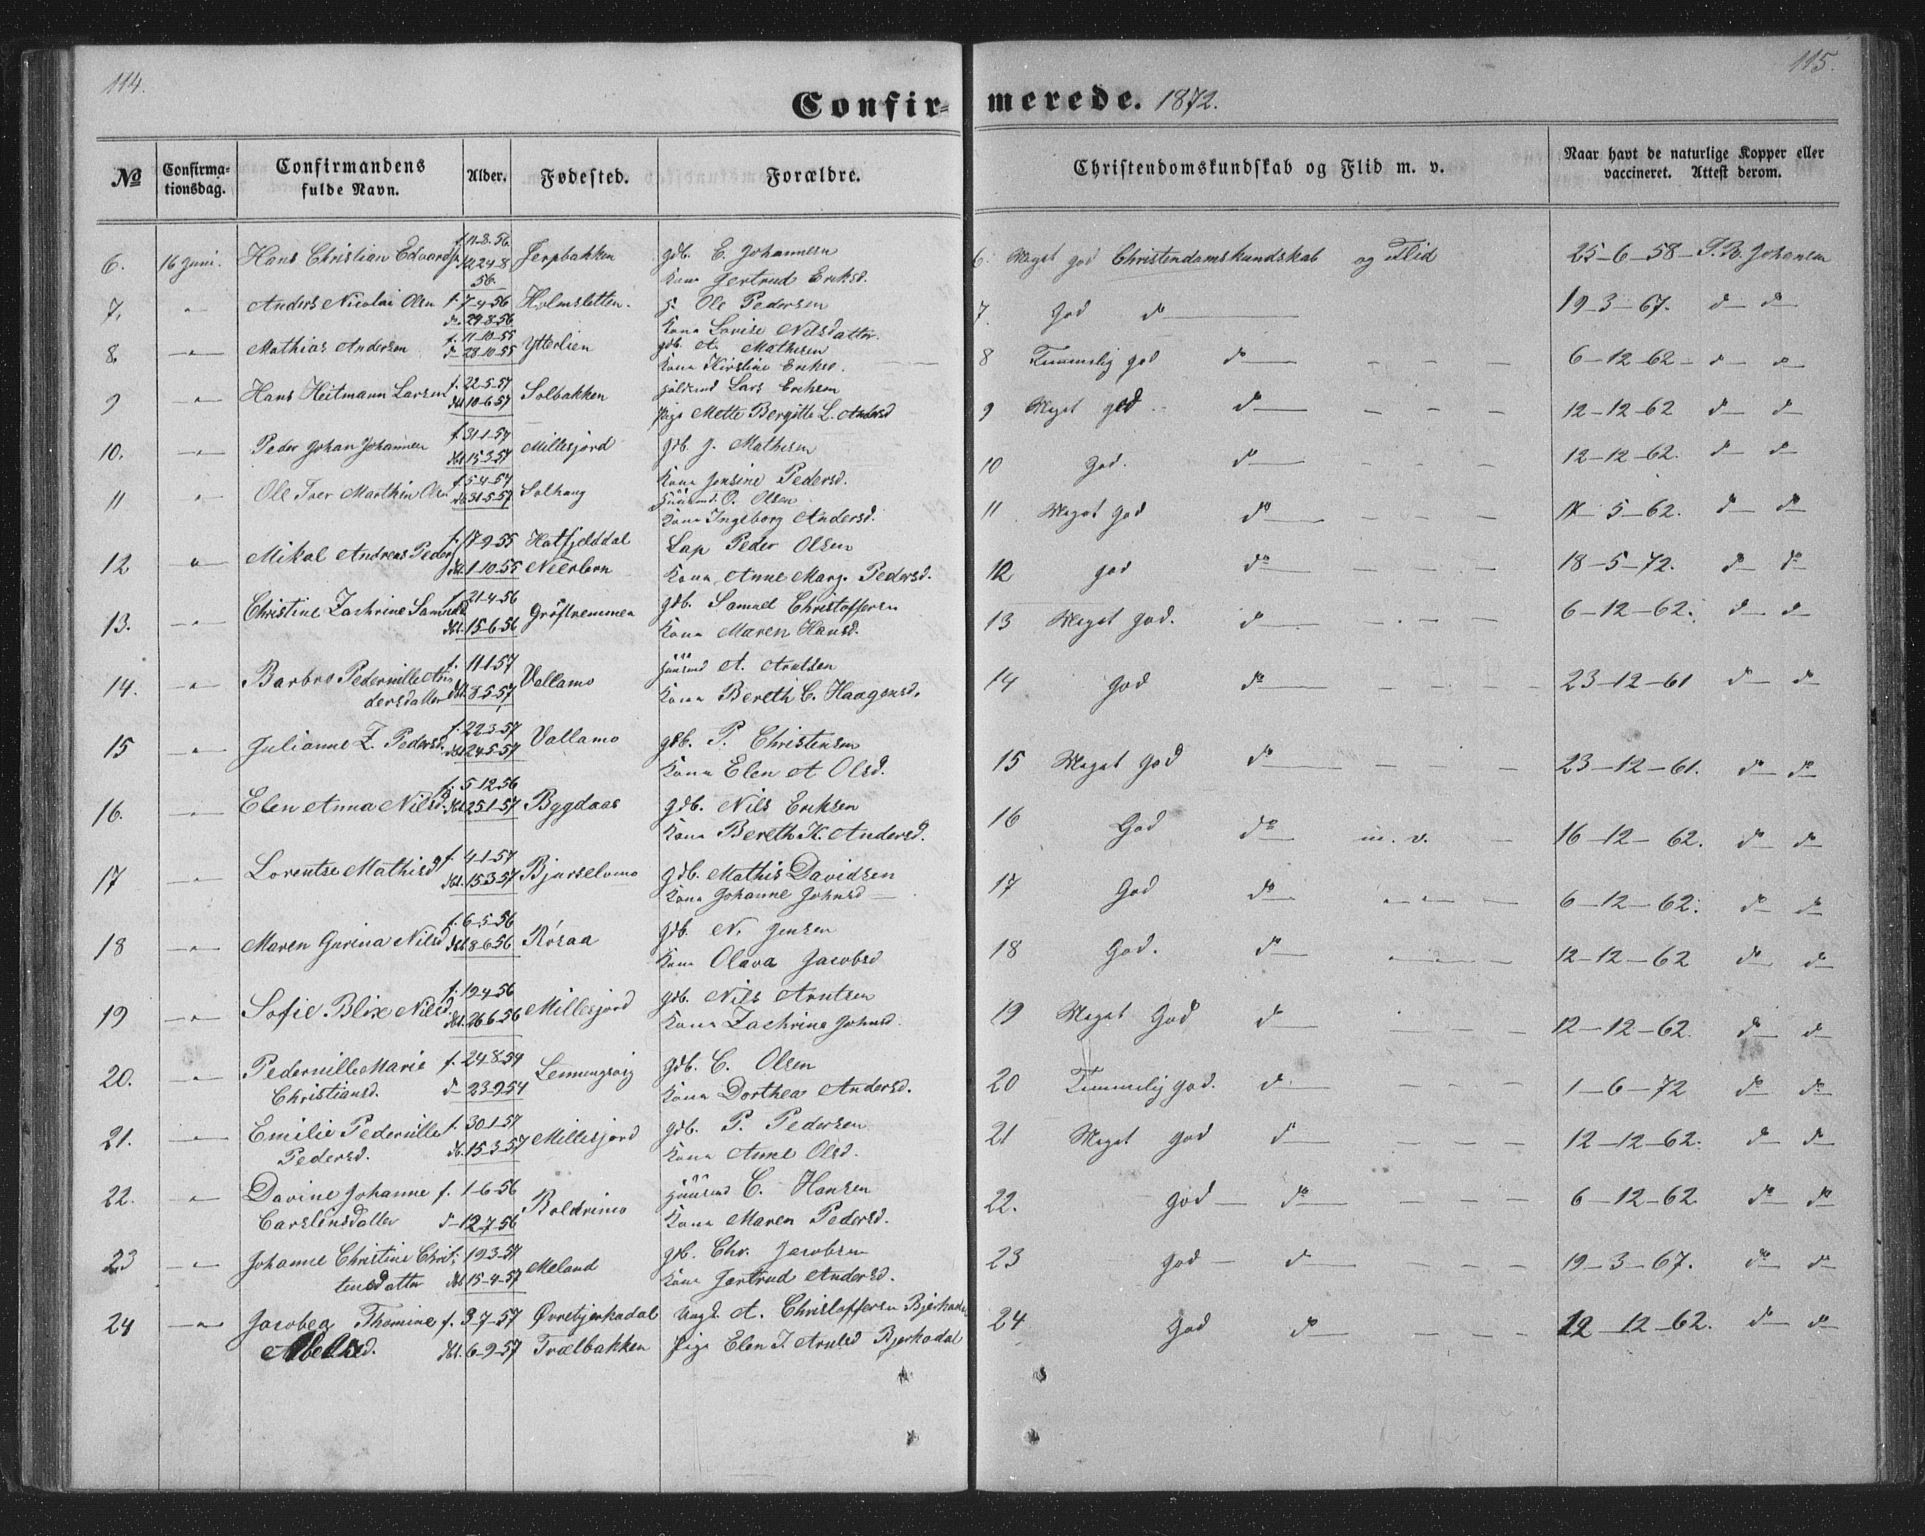 114.
115.
Confirmerede. 1872.
№ Confirmationsdag. Confirmandens fulde Navn. Alder. Fødested. Forældre. Christendomskundskab og Flid m. v. Naar havt de naturlige Kopper eller vaccineret. Attest derom.
6. 16 Juni. Hans Christian Edvards. f. 11-8-56 Jerpbakken gdb. E. Johannesen 6. Meget god Christendomskundskab og Flid 25-6-58- P. B. Johansen
24-8 56. Kone Gertrud Eriksd.
7. -"- Anders Nicolai Olsen f. 7-4-56 Holmsletten. Ole Pedersen 7. God do 19-3-67. do do
do. 29-8-56 Kone Lovise Nilsdatter.
8. -"- Mathias Andersen f. 11-10-55 Ytterlien gdb. A. Mathisen 8 Temmelig god do - - - 6-12-62- do do
do 28-10-55 Kone Kirstine Eriksd.
9 -"- Hans Heitmann Larsen f. 22-5-57 Solbakken Lars Eriksen 9 Meget god do - - - 12-12-62 do do
dbt. 10-6-57 Pige Mette Bergitte L. Andersd
10. -"- Peder Johan Johannesen f. 31-1-57 Millesjord gdb. J. Mathisen 10 God. do - - - 12-12-62. do do
dbt. 15-3-57 Kone Jensine Pedersd.
11 " Ole Iver Marthin Olsen f. 5-4-57 Solhaug Huusmd. O. Olsen 11 Meget god do - - 17-5-62. do do
31-5-57 Kone Ingeborg Andersd.
12 " Mikal Andreas Peders. f. 17-9-55 Hatfjelddal Lap Peder Olsen 12 god do - - - 18-5-72. do do
dbt. 1-10-55 Kone Anne Marg. Pedersd.
13. -"- Christine Zachrine Samuelsd. f. 21-4-56 Grøftremmen gdb. Samuel Christoffersen 13 Meget god. do - - - 6-12-62. do do
dbt. 15-6-56 Kone Maren Hansd.
14. -"- Barbro Pedernille An- f. 11-1-57 Vallamo Huusmd A. Arntsen 14 god do - - - 23-12-61 do do
dersdatter dbt. 8-5-57 Kone Bereth C. Haagensd.
15 -"- Julianne Z. Pedersd. f. 22-3-57 Vallamo gdb. P. Christensen 15 Meget god do - - - 23-12-61. do do
dbt. 24-5-57 Kone Elen A Olsd.
16. -"- Elen Anna Nilsd. f. 5-12-56 Bygdaas gdb. Nils Eriksen 16 God do m. v. - 16-12-62. do do
dbt. 25-1-57 Kone Bereth K. Andersd.
17 -"- Lorentse Mathisd f. 4-1-57 gdb. Mathis Davidsen 17 God do - - - 6-12-62. do do
dbt. 15-3-57 Kone Johanne Johnsd
18 -"- Maren Gurina Nilsd f. 6-5-56 Røsaa gdb. N. Jensen 18 God. do 12-12-62 do do
dbt. 8-6-56 Kone Olava Jacobsd
19 -"- Sofie Blix Nilsd. f. 19-4-56 Millesjord gdb. Nils Arntsen 19 Meget God do - - 12-12-62 do do
dbt. 26-6-56 Kone Zachrine Johnsd.
20. -"- Pedernille Marie f. 24-8-54 Lenningsvig gdb. C. Olsen 20 Temmelig god. do - - - 1-6-72 do do
Christiansd. do 23-9-54 Kone Dorthea Andersd.
21. -"- Emilie Pedernille f. 30-1-57 Millesjord gdb. P. Pedersen 21 Meget god do - - - 12-12-62. do do
Pedersd. db. 15-3-57 Kone Anne Olsd.
22. -"- Davine Johanne f. 1-6-56 Huusmd C. Hansen 22. god - do - - - 6-12-62 do do
Carstensdatter do 12-7-56 Kone Maren Pedersd.
23 -"- Johanne Christine Chris- 19-3-57 Meland gdb. Chr. Jacobsen 23 god - do - - - 19-3-67. do do
tensdatter dbt. 15-4-57 Kone Gertrud Andersd.
24 -"- Jacobea Thomine f. 3-7-57 Øvrebjerkadal Ungk. A. Christoffersen Bjerkadal 24 God do - - - 12-12-62. do do
Abelsd. dbt. 6-9-57 Trælbakken Pige Elen J. Arntsd Bjerkadal